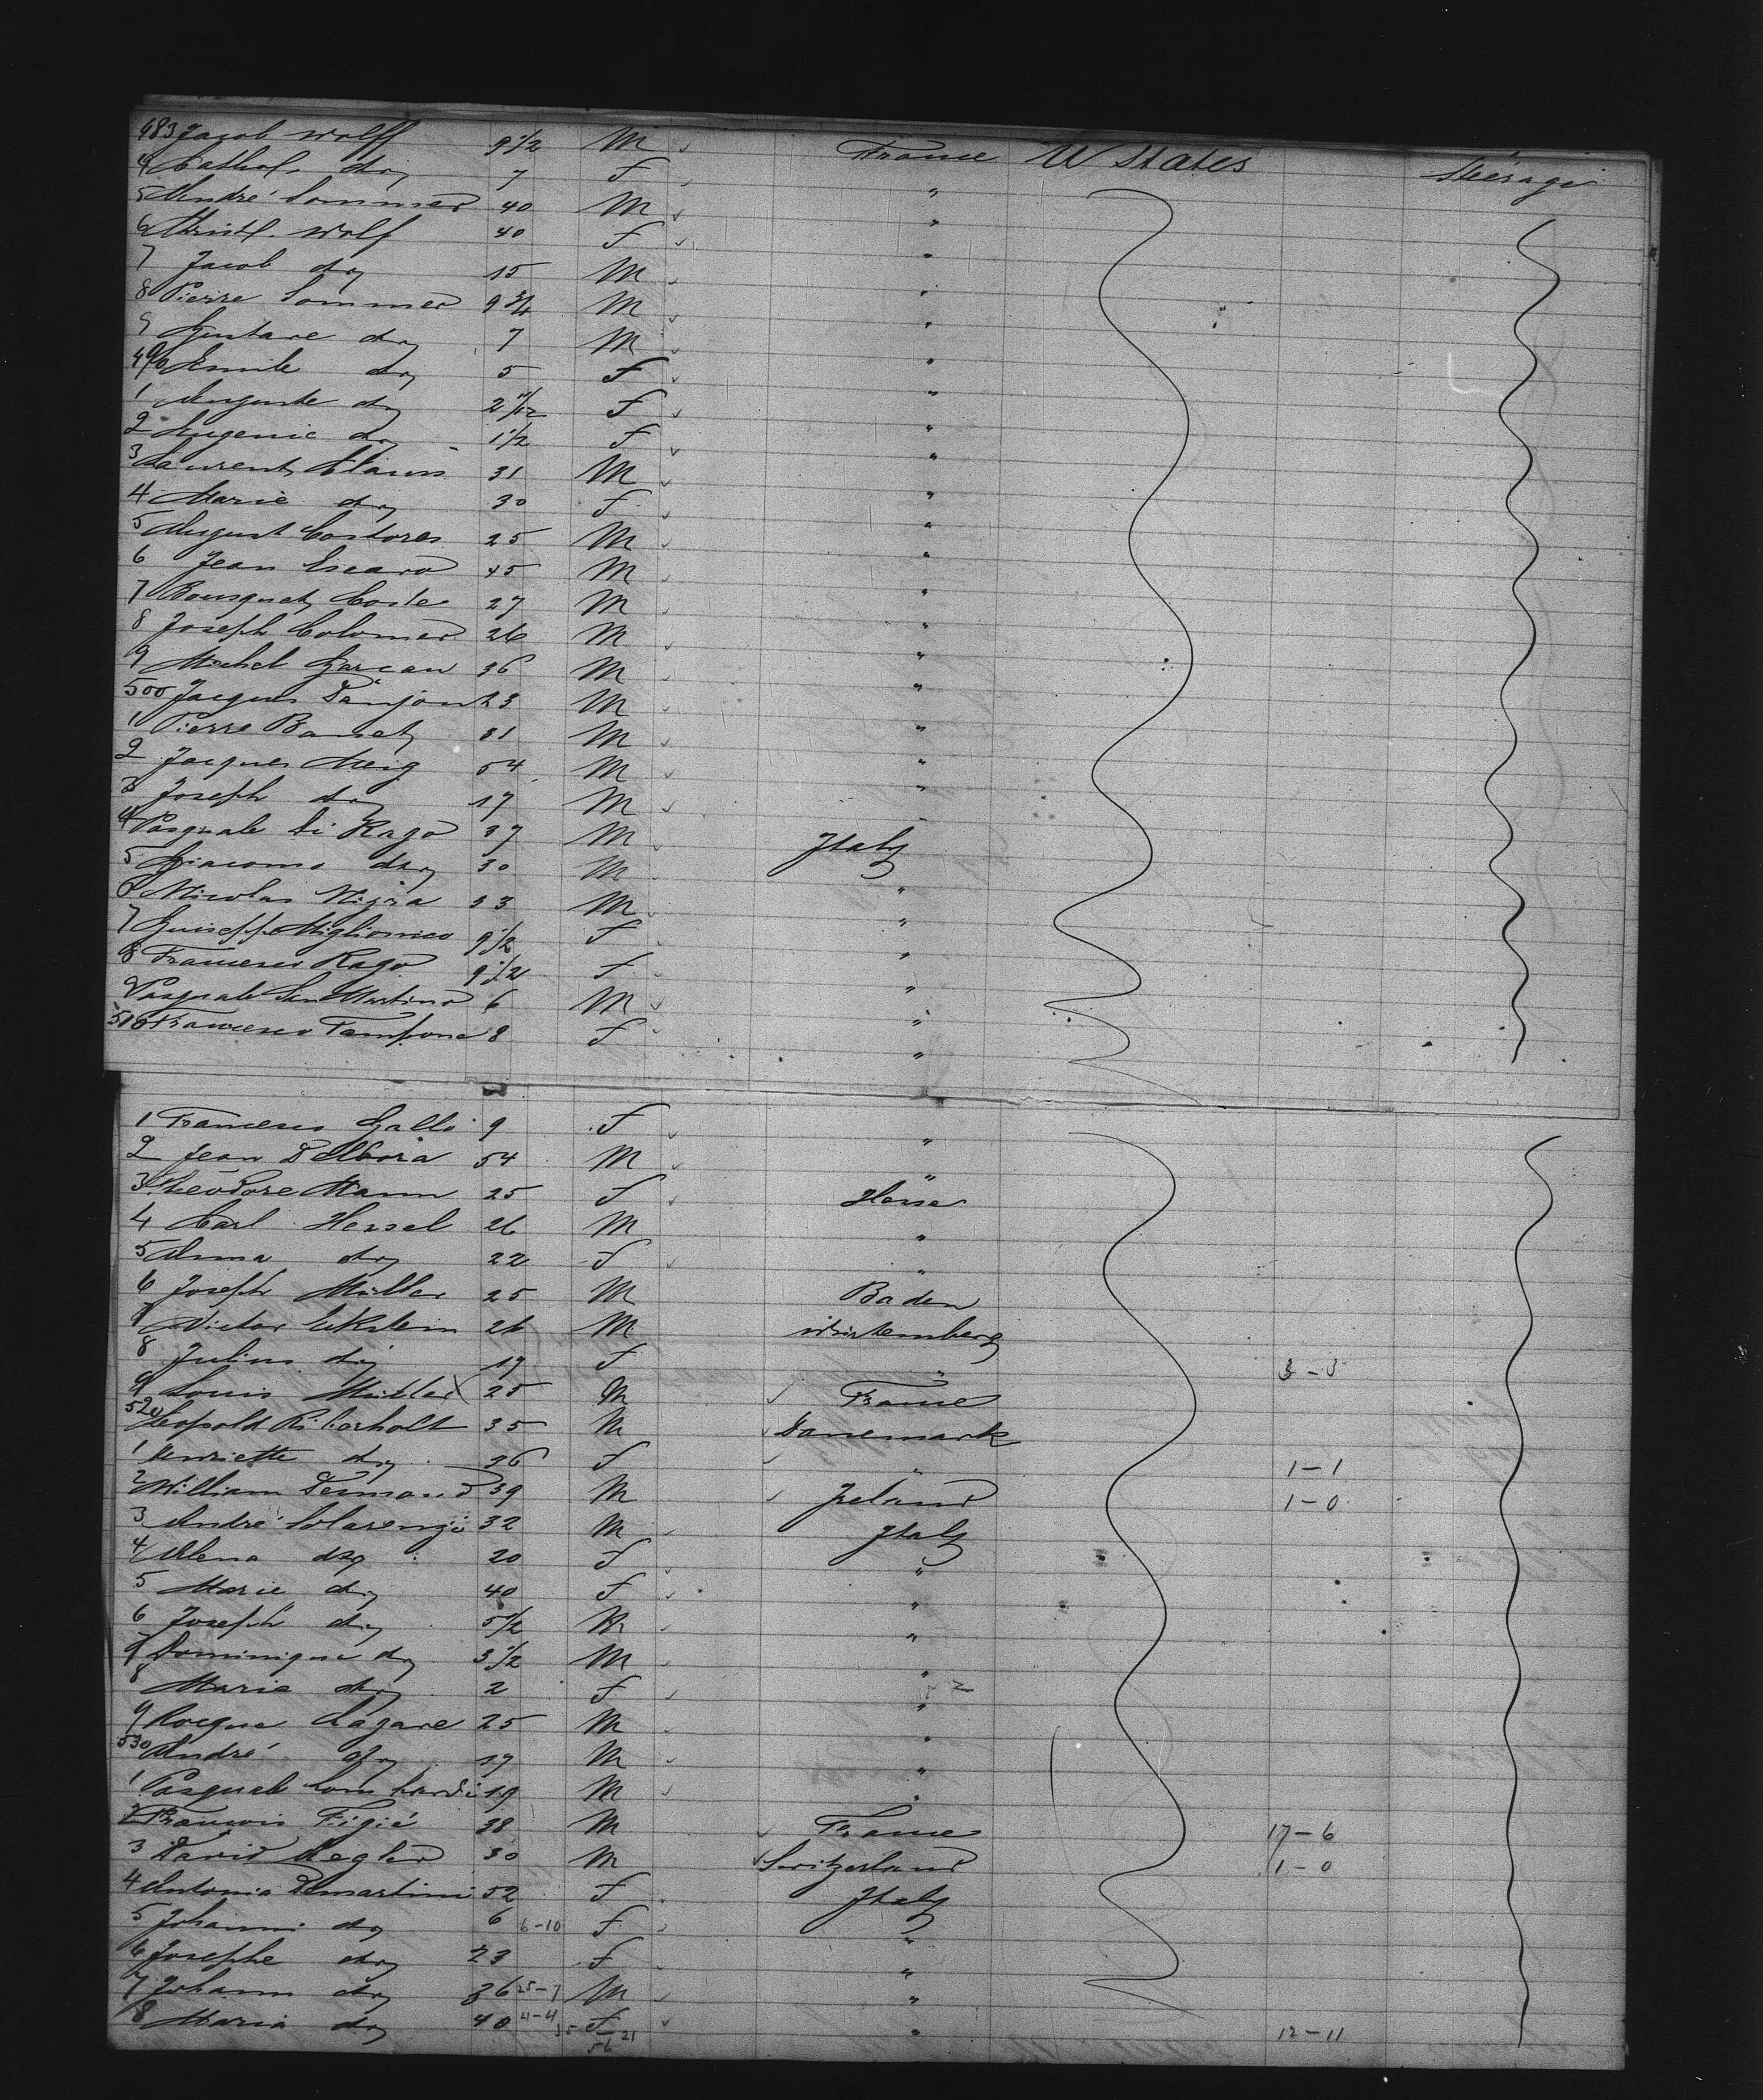 483 Jacob Wolff 9 1/2 M France U States Stéerage
4 Cathol. do 7 F "
5 André Sommer 40 M "
6 Christ. Wolf 40 F "
7 Jacob do 15 M "
8 Pierre Sommer 9 3/4 M "
9 Gustave do 7 M "
490 Emile do 5 F "
1 Auguste do 2 F "
2 Eugenie do 1 1/2 F "
3 Laurent Clauss 31 M "
4 Marie do 30 F "
5 August Castores 25 M "
6 Jean Escaro 45 M "
7 Bousquet Coste 27 M "
8 Joseph Colomer 26 M "
9 Michel Garcau 36 M "
500 Jacques Panjou 23 M "
1 Pierre Banet 31 M "
2 Jacques Meig 54 M "
3 Joseph do 17 M "
4 Pasquale Di Rago 37 M Italy
5 Giacomo do 30 M "
6 Nicolas Nigra 33 M "
7 Guiseppe Miglionico 9 1/2 F "
8 Francesco Rago 9 1/2 F "
9 Pasquale San Martino 6 M "
510 Francesco Tampone 8 F "
1 Francesco Gallo 9 F "
2 Jean Dellora 54 M "
3 Theodore Mann 25 F Hesse
4 Carl Hessel 26 M "
5 Anna do 22 F "
6 Joseph Müller 25 M Baden
7 Victor Ekstein 26 M Würtemberg
8 Julius do 17 F " 3-3
9 Louis Müller X 25 M France
520 Leopold Riberholt 35 M Danemark
1 Henriette do 36 F " 1-1
2 William Desmond 39 M Ireland 1-0
3 André Solarenzi 32 M Italy
4 Alena do 20 F "
5 Marie do 40 F "
6 Joseph do 5 1/2 M "
7 Dominique do 3 1/2 M "
8 Marie do 2 F "
9 Rocque Lagare 25 M "
530 André do 17 M "
1 Pasquale Lombardi 19 M "
2 Francois Figié 38 M France 17-6
3 David Aegler 30 M Switzerland 1-0
4 Antonia Demartini 52 F Italy
5 Johanni do 6 6-10 F "
6 Josephe do 23 F "
7 Johann do 36 25-7 M "
8 Maria do 40 4-4 F " 12-11
35-21
56